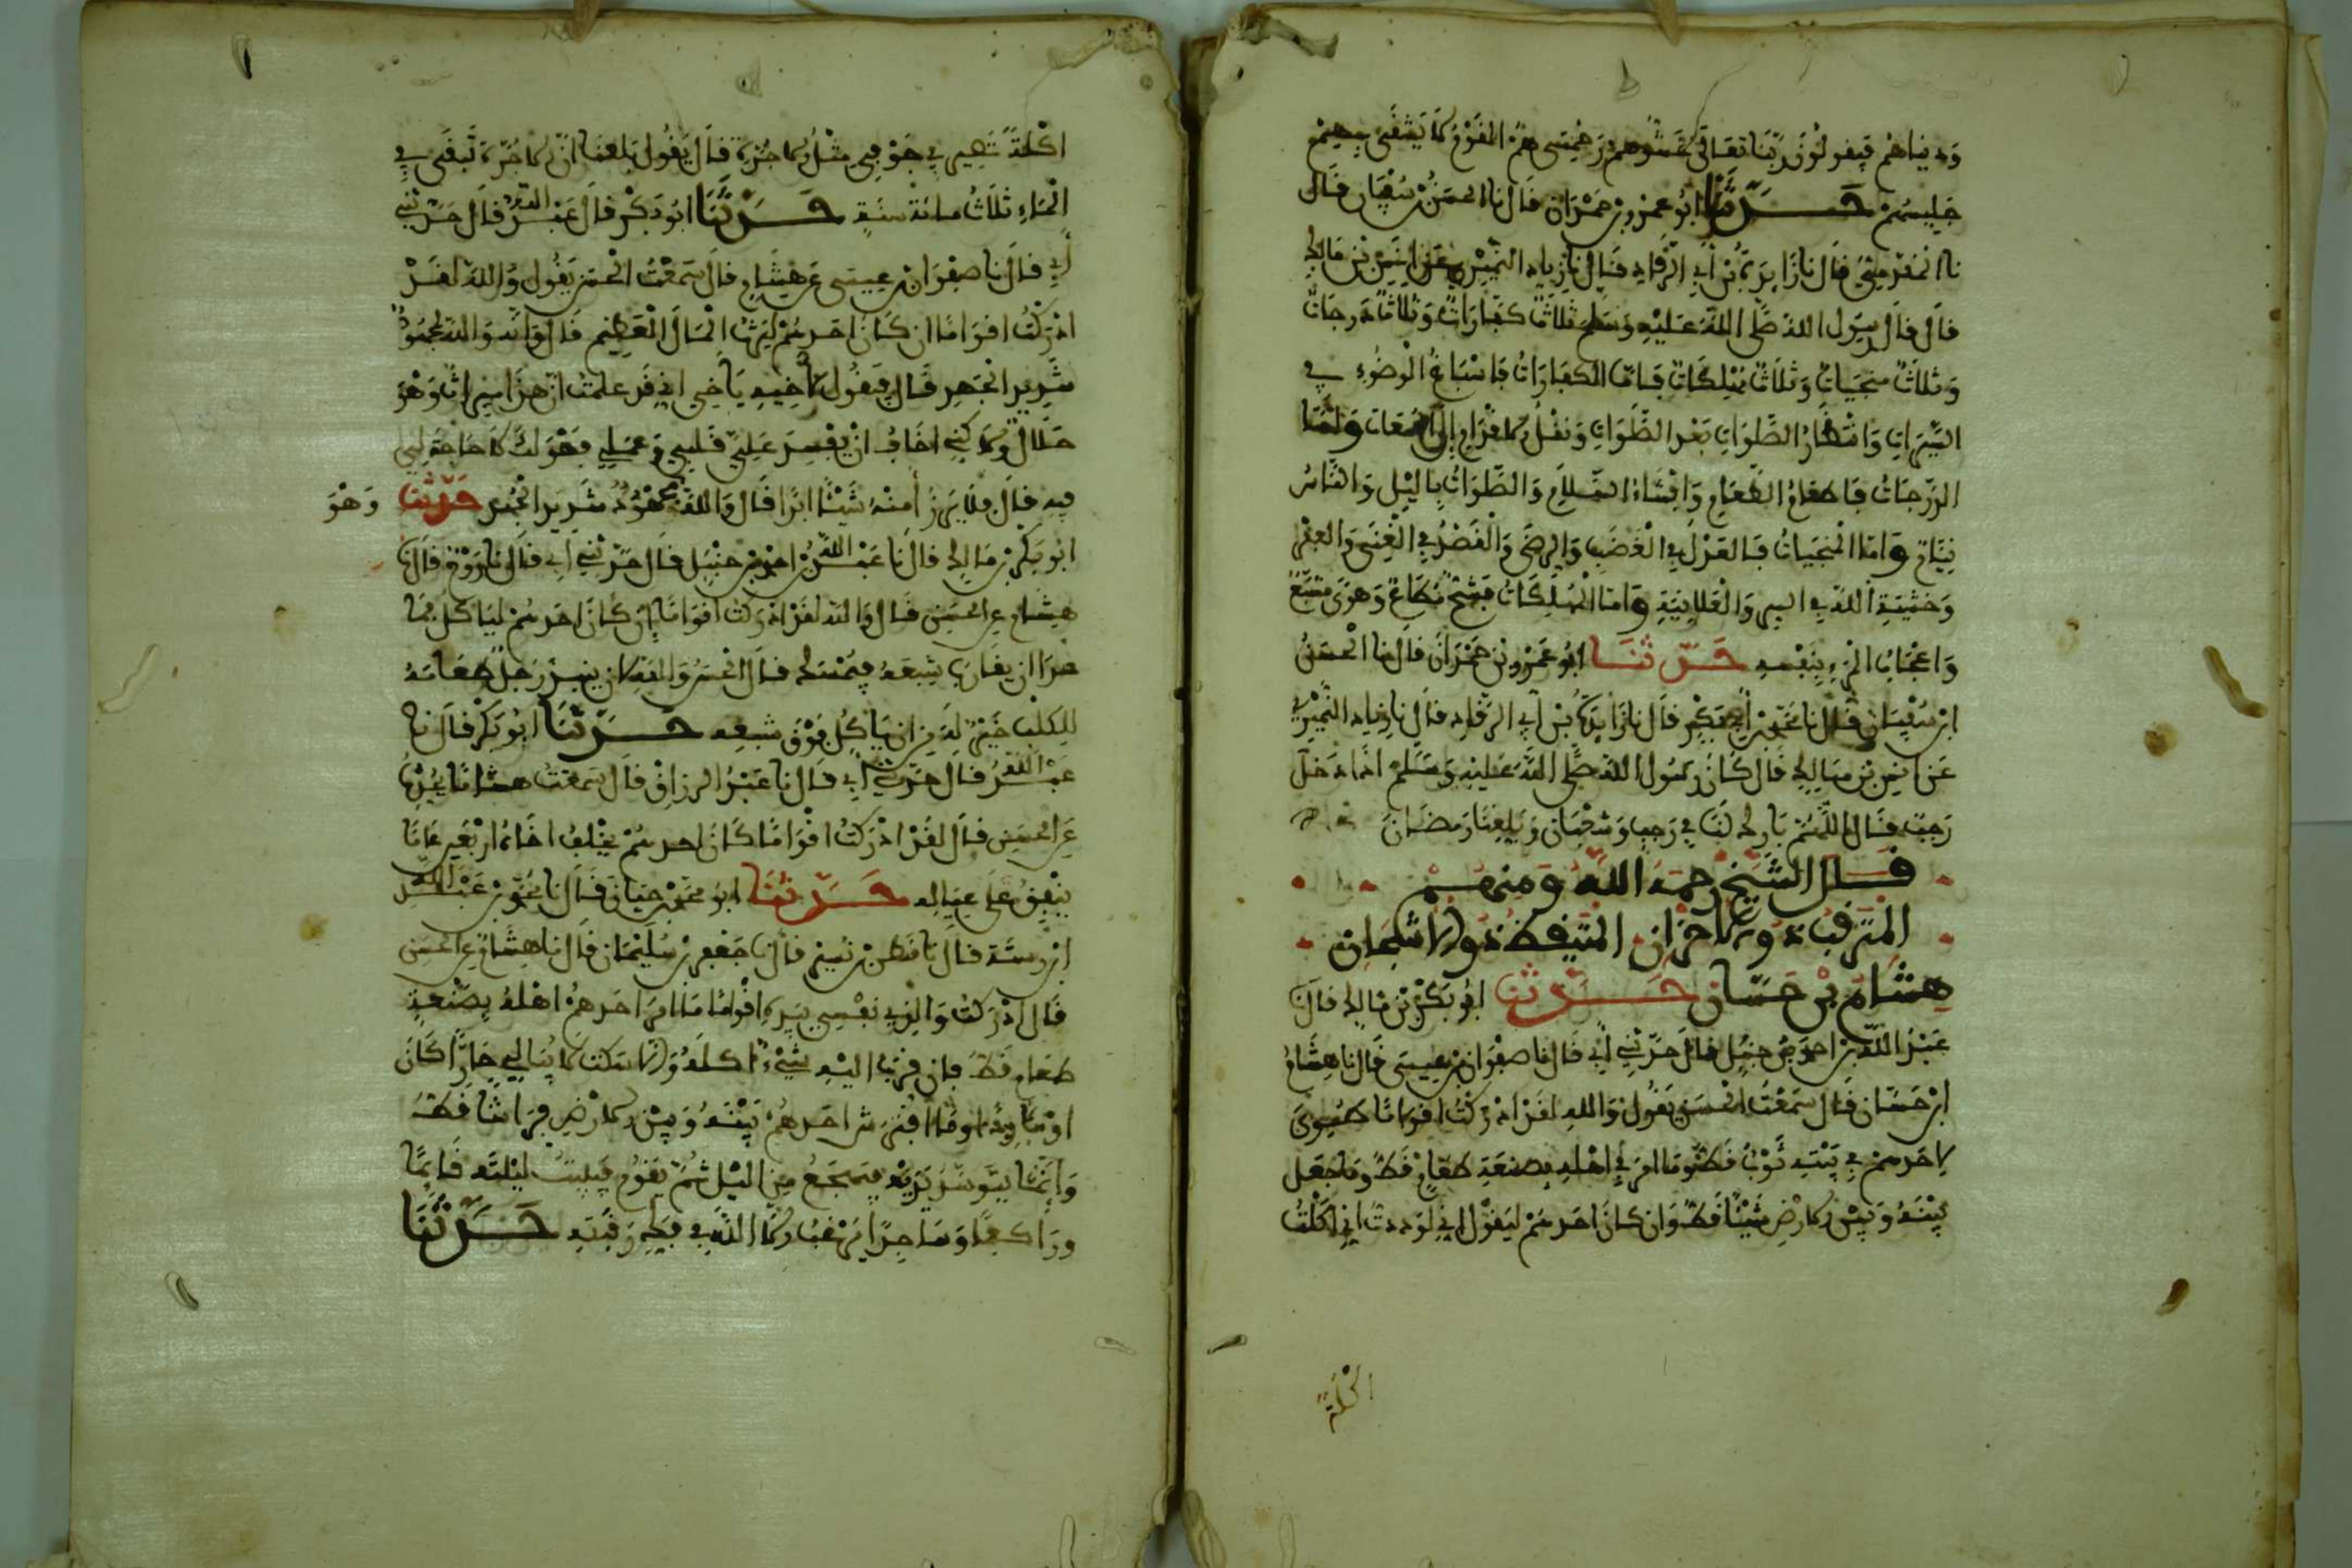 ودنياهم فيقولون ربنا تعالى غشوهم رحمتي هم القوم لا يشقى بهم
جليسهم حدثنا ابو عمرو بن حمدان قال نا الحسن بن سفيان قال
نا المقدمي قال نا زايدة بن أبي الرقاد قال نا زياد النميري عن انس بن مالك
قال قال رسول الله صلى الله عليه وسلم ثلاث كفارات وثلاث درجات
وثلاث منجيات وثلاث مهلكات فاما الكفارات فاسباغ الوضوء في
السبرات وانتظار الصلوات بعد الصلوات ونقل الاقدام إلى الجمعات واما
الدرجات فاطعام الطعام وإفشاء السلام والصلوات بالليل والناس
نيام واما المنجيات فالعدل في الغضب والرضى والقصد في الغنى والفقر
وخشية الله في السر والعلانية واما المهلكات فشح مطاع وهوى متبع
واعجاب المرء بنفسه حدثنا ابو عمرو بن حمدان قال نا الحسن
ابن سفيان قال نا محمد بن أبي بكر قال نا زايدة بن أبي الرقاد قال نا زياد النميري
عن انس بن مالك قال كان رسول الله صلى الله عليه وسلم اذا دخل
رجب قال اللهم بارك لنا في رجب وشعبان وبلغنا رمضان
قال الشيخ رحمه الله ومنهم
المترقب ذو الاحزان المتيقظ ذو الاشجان
هشام بن حسان حدثنا ابو بكر بن مالك قال نا
عبد الله بن احمد بن حنبل قال حدثني أبي قال نا صفوان بن عيسى قال نا هشام
ابن حسان قال سمعت الحسن يقول والله لقد ادركت اقواما طوى
لاحدهم في بيته ثوب قط وما امر في اهله بصنعة طعام قط وما جعل
بينه وبين الارض شيئا قط وان كان احدهم ليقول اني لوددت اني اكلت
اكلة
اكلة تصير في جوفي مثل الاجرة قال يقول بلغنا ان الاجرة تبقى في
الماء ثلاث مائة سنة حدثنا ابو بكر قال عبد الله قال حدثني
أبي قال نا صفوان بن عيسى عن هشام قال سمعت الحسن يقول والله لقد
ادركت اقواما ان كان احدهم ليرث المال العظيم قال وانه والله لمجهود
شديد الجهد قال فيقول لاخيه يا اخي اني قد علمت ان هذا ميراث وهو
حلال ولاكني اخاف ان يفسد علي قلبي وعملي فهو لك لا حاجة لي
فيه قال فلا يرزأ منه شيئا ابدا قال والله مجهود شديد الجهد حدثنا وهو
ابو بكر بن مالك قال نا عبد الله بن احمد بن حنبل قال حدثني أبي قال نا روح قال نا
هشام عن الحسن قال والله لقد ادركت اقواما إن كان احدهم لياكل فما
عدا ان يقارب شبعه فيمسك قال الحسن والله لان ينبذ رجل طعامه
للكلب خير له من ان ياكل فوق شبعه حدثنا ابو بكر قال نا
عبد الله قال حدثني أبي قال نا عبد الرزاق قال سمعت هشاما يحدث
عن الحسن قال لقد ادركت اقواما كان احدهم يخلف اخاه اربعين عاما
ينفق على عياله حدثنا ابو محمد بن حيان قال نا محمد بن عبد الله
ابن رسته قال نا قطن بن نسير قال نا جعفر بن سليمان قال نا هشام عن الحسن
قال ادركت والذي نفسي بيده اقواما ما امر احدهم اهله بصنعة
طعام قط فان قرب اليه شيء اكله والا سكت لا يبالي حارا كان
او باردا وما افترش احدهم بينه وبين الارض فراشا قط
وإنما يتوسد يده فيهجع من الليل ثم يقوم فيبيت ليلته قائما
وراكعا وساجدا يرغب الى الله في فك رقبته حدثنا